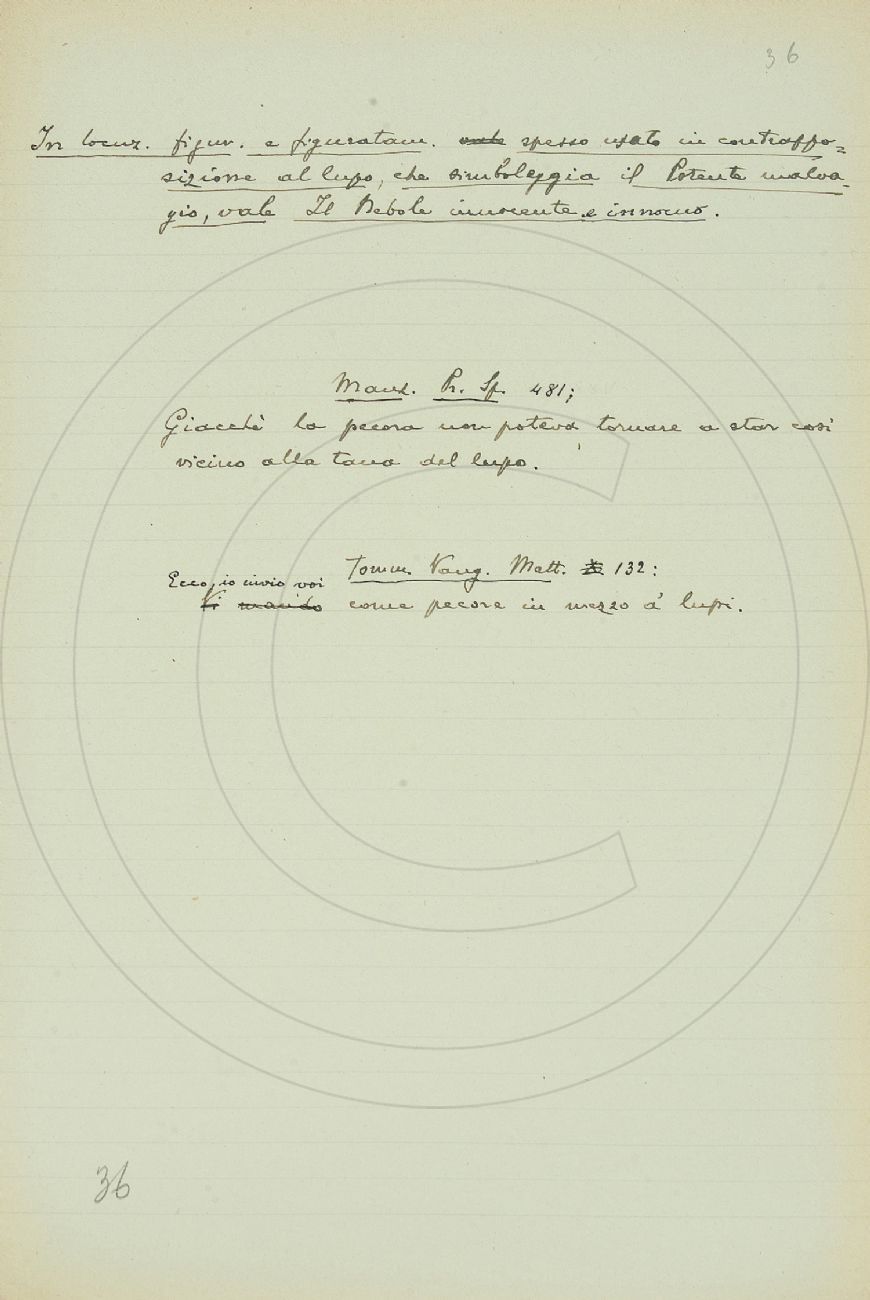 36
In locuz. figur. e figuratam. vale spesso usato in contrappo=
sizione al lupo, che simboleggia il Potente malva-
gio, vale Il Debole innocente e innocuo.
Manz. Pr. Sp. 481;
Giacchè la pecora non poteva tornare a star così
vicino alla tana del lupo.
Tomm. Vang. Matt. 132:
Ecco, io invio voi
Vi mando come pecore in mezzo a' lupi.
36